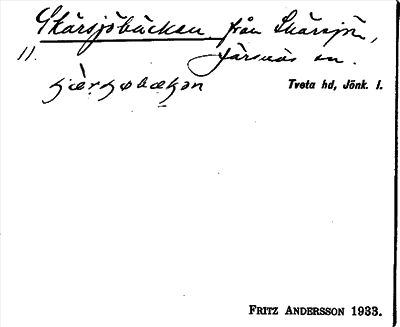 Skärsjöbäcken från Skärsjön,
11. Järsnäs sn.
Tveta hd, Jönk. l.
FRITZ ANDERSSON 1933.